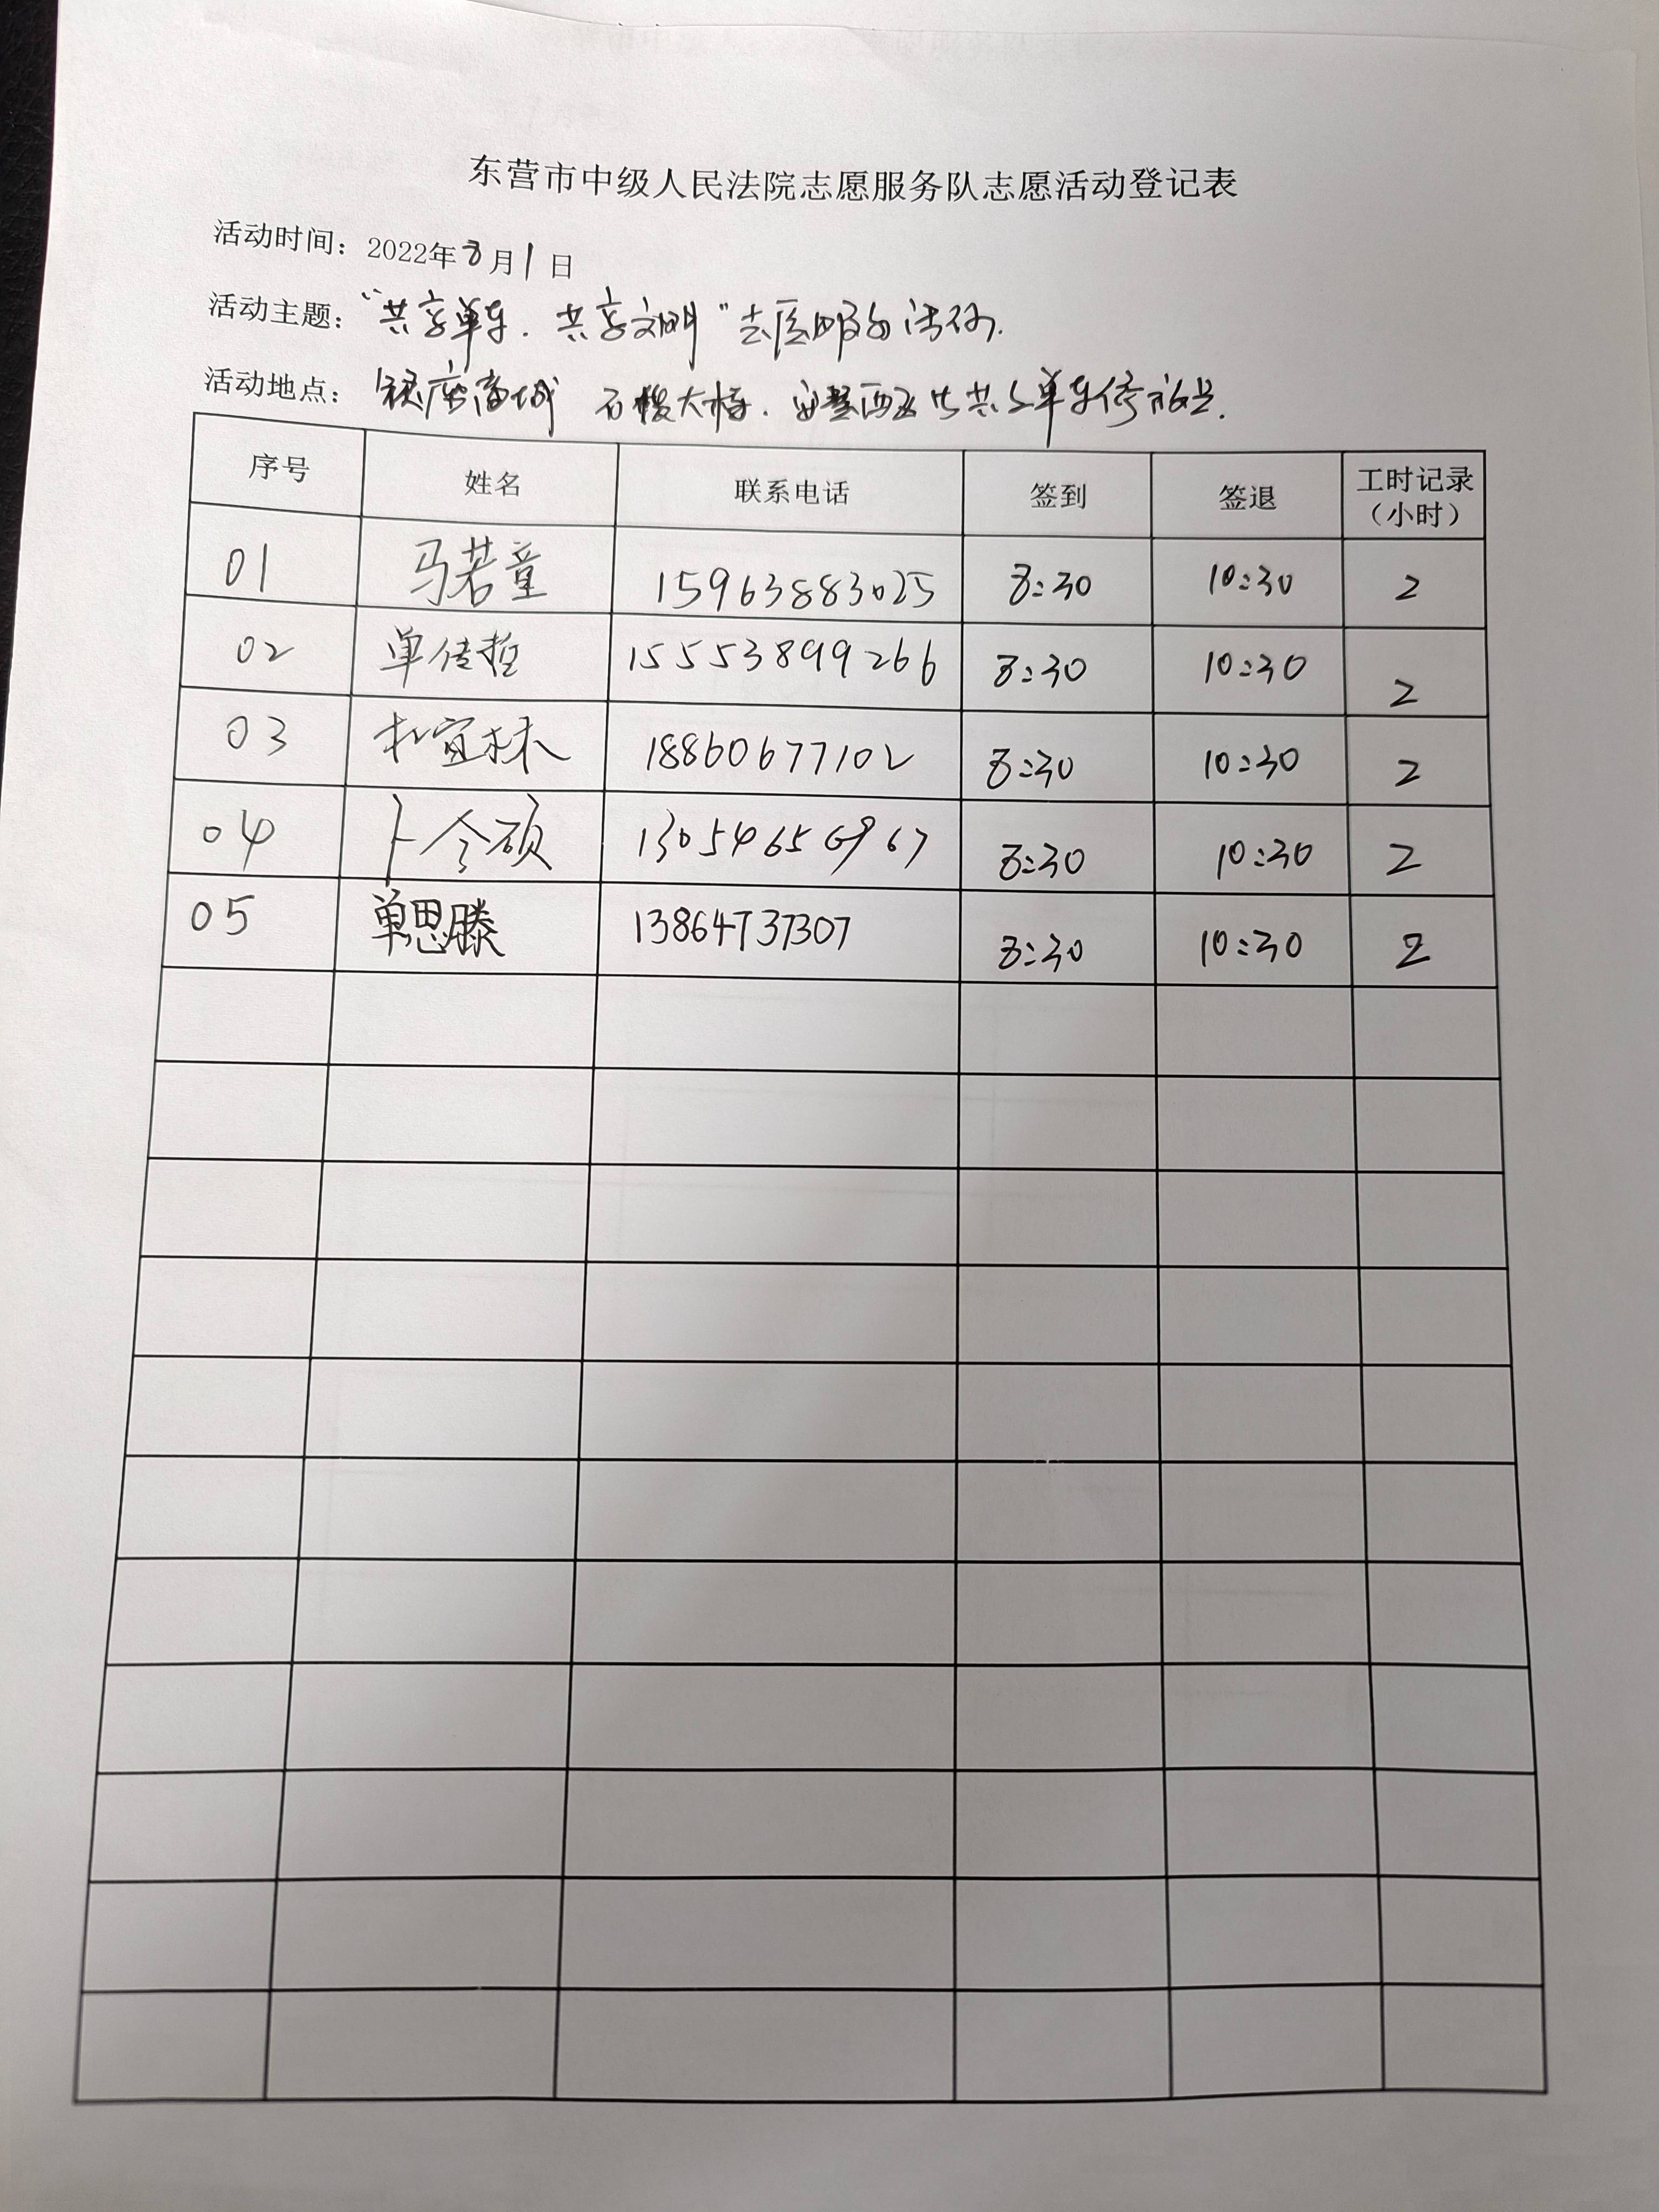 东营市中级人民法院志愿服务队志愿活动登记表
活动时间：2022年8月1日
活动主题：“共享单车.共享文明”志愿服务活动.
活动地点：银座商城 石楼大楼. 共享单车停放点.
序号 姓名 联系电话 签到 签退 工时记录（小时）
01 马若童 15963883025 8:30 10:30 2
02 单传哲 15553899266 8:30 10:30 2
03 宜林 18860677102 8:30 10:30 2
04 卜令硕 13054656967 8:30 10:30 2
05 单思滕 13864737307 8:30 10:30 2